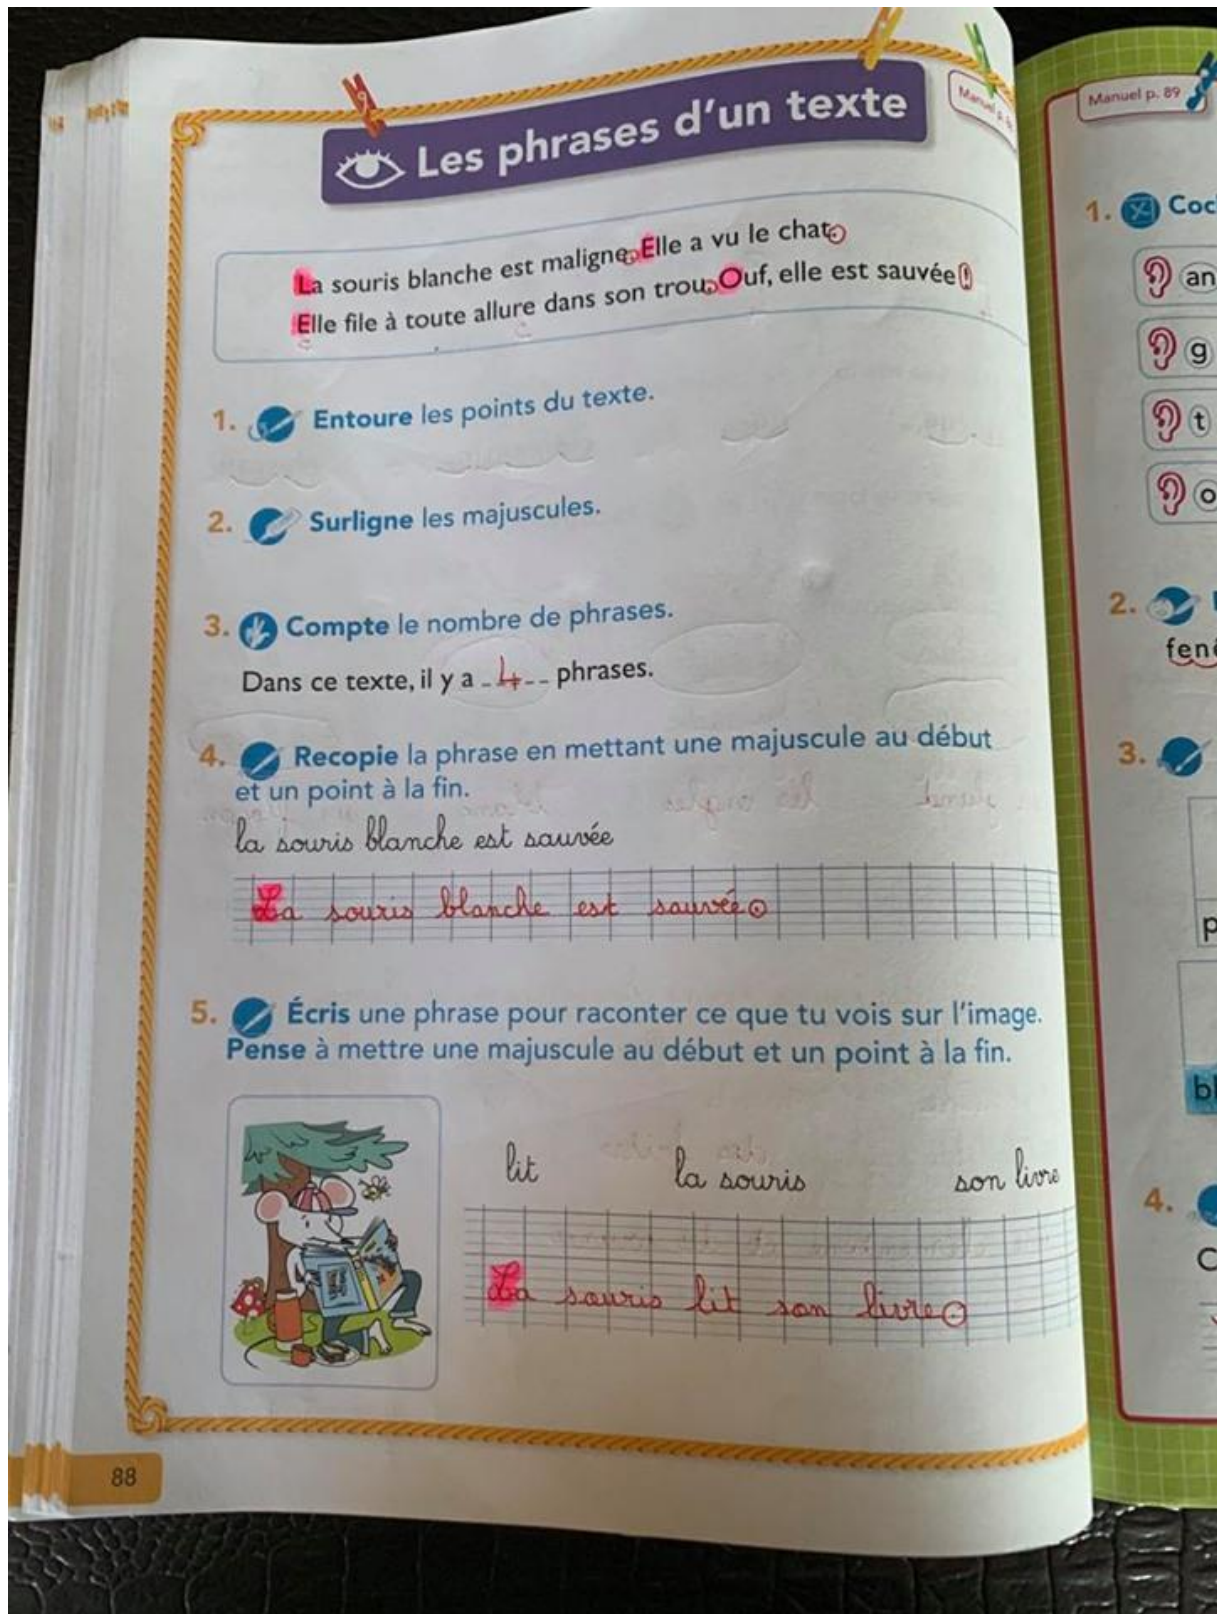 Les phrases d'un texte
La souris blanche est maligne. Elle a vu le chat.
Elle file à toute allure dans son trou. Ouf, elle est sauvée !
1. Entoure les points du texte.
2. Surligne les majuscules.
3. Compte le nombre de phrases.
Dans ce texte, il y a 4 phrases.
4. Recopie la phrase en mettant une majuscule au début
et un point à la fin.
la souris blanche est sauvée
La souris blanche est sauvée.
5. Écris une phrase pour raconter ce que tu vois sur l'image.
Pense à mettre une majuscule au début et un point à la fin.
lit la souris son livre
La souris lit son livre.
88
Manuel p. 89
1.
an
g
t
o
2.
3.
4.